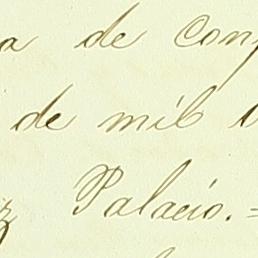 a de conf
de mil
z Palacio.=